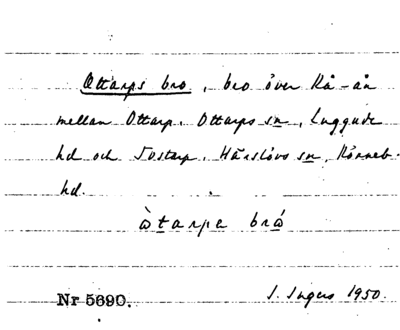 Ottarps bro, bro över Rå-ån
mellan Ottarp, Ottarps sn, Luggude
hd och Tostarp, Härslövs sn, Rönneb.
hd.
òtarpe brǻ
Nr 5690. I. Ingers 1950.